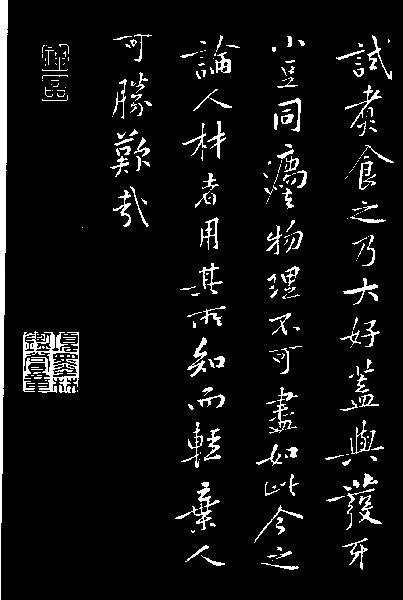 試煮食之乃大好蓋與發牙
小豆同物理不可盡如此今之
論人材者用其所知而輕棄人
可勝歎哉
項墨林
鑑賞章